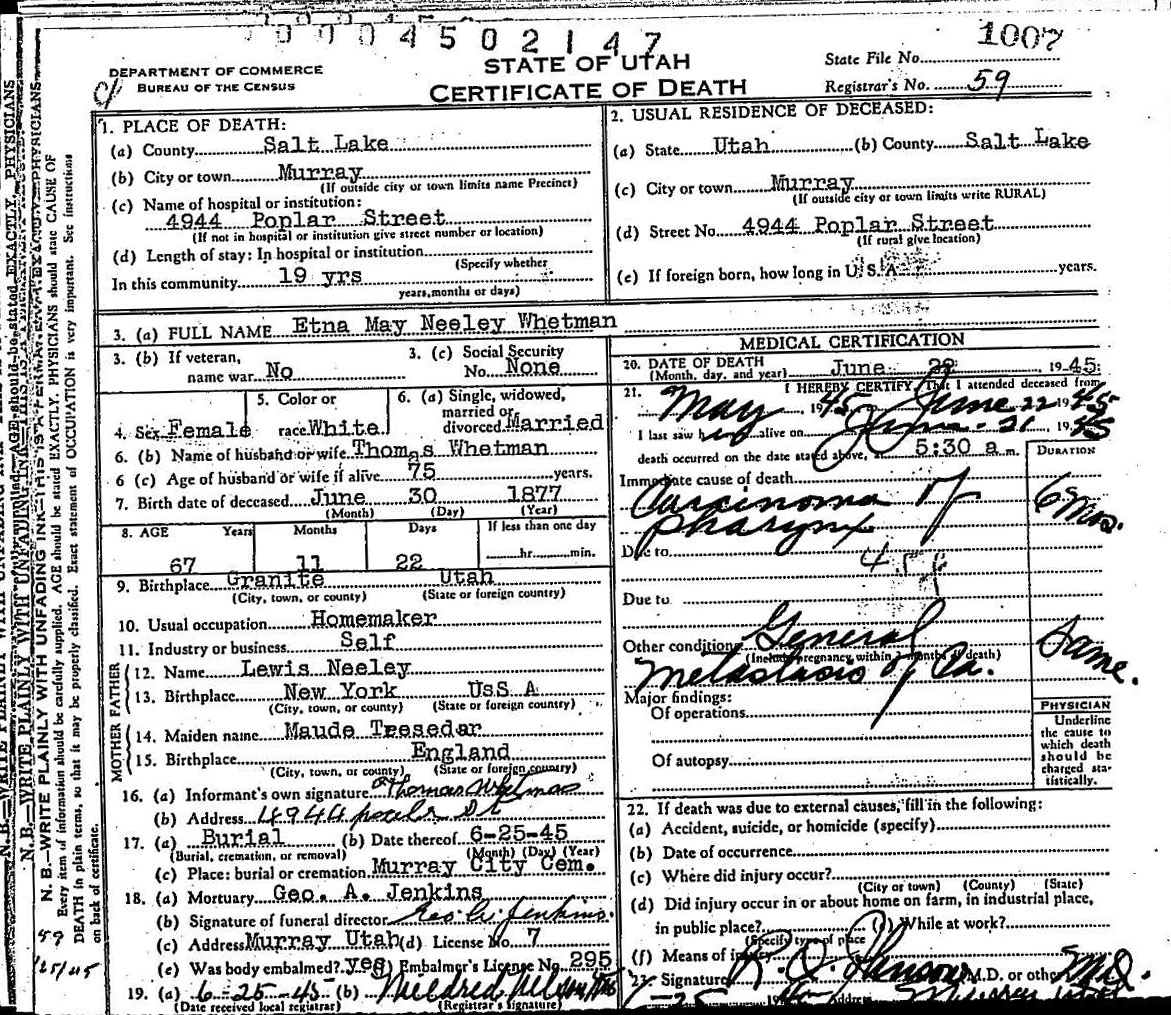 0004502147
1007
DEPARTMENT OF COMMERCE
BUREAU OF THE CENSUS
STATE OF UTAH
CERTIFICATE OF DEATH
State File No.
Registrar's No. 59
1. PLACE OF DEATH:
(a) County Salt Lake
(b) City or town Murray
(If outside city or town limits name Precinct)
(c) Name of hospital or institution:
4944 Poplar Street
(If not in hospital or institution give street number or location)
(d) Length of stay: In hospital or institution
(Specify whether
In this community 19 yrs
years, months or days)
2. USUAL RESIDENCE OF DECEASED:
(a) State Utah (b) County Salt Lake
(c) City or town Murray
(If outside city or town limits write RURAL)
(d) Street No. 4944 Poplar Street
(If rural give location)
(e) If foreign born, how long in U. S. A. years.
3. (a) FULL NAME Etna May Neeley Whetman
3. (b) If veteran,
name war No
3. (c) Social Security
No. None
4. Sex Female
5. Color or
race White
6. (a) Single, widowed,
married or
divorced Married
6. (b) Name of husband or wife Thomas Whetman
6 (c) Age of husband or wife if alive 75 years.
7. Birth date of deceased June 30 1877
(Month) (Day) (Year)
8. AGE Years Months Days If less than one day
67 11 22 hr. min.
9. Birthplace Granite Utah
(City, town, or county) (State or foreign country)
10. Usual occupation Homemaker
11. Industry or business Self
FATHER
12. Name Lewis Neeley
13. Birthplace New York UsS A
(City, town, or county) (State or foreign country)
MOTHER
14. Maiden name Maude Tresedar
15. Birthplace England
(City, town, or county) (State or foreign country)
16. (a) Informant's own signature Thomas
(b) Address 4944
17. (a) Burial (b) Date thereof 6-25-45
(Burial, cremation, or removal) (Month) (Day) (Year)
(c) Place: burial or cremation Murray City Cem.
18. (a) Mortuary Geo. A. Jenkins
(b) Signature of funeral director Geo. A. Jenkins.
(c) Address Murray Utah (d) License No. 7
(e) Was body embalmed? yes Embalmer's License No. 295
19. (a) 6-25-45 (b) Mildred
(Date received local registrar) (Registrar's signature)
MEDICAL CERTIFICATION
20. DATE OF DEATH June 22 1945
(Month, day, and year)
21. I HEREBY CERTIFY That I attended deceased from
May, 1945 to June 22 1945
I last saw her alive on June 21 1945
death occurred on the date stated above, at 5:30 a m.
DURATION
Immediate cause of death
Carcinoma of
pharynx
6 Mos.
Due to
Due to
Other condition General
(Include pregnancy within 3 months of death)
Metastasis of Ca.
Same.
Major findings:
Of operations
Of autopsy
PHYSICIAN
Underline
the cause to
which death
should be
charged sta-
tistically.
22. If death was due to external causes, fill in the following:
(a) Accident, suicide, or homicide (specify)
(b) Date of occurrence
(c) Where did injury occur?
(City or town) (County) (State)
(d) Did injury occur in or about home on farm, in industrial place,
in public place? While at work?
(Specify type of place
(f) Means of injury
23. Signature M.D. or other M.D.
N. B.—WRITE PLAINLY WITH UNFADING INK—THIS IS A PERMANENT
Every item of information should be carefully supplied. AGE should be stated EXACTLY. PHYSICIANS should state CAUSE OF
DEATH in plain terms, so that it may be properly classified. Exact statement of OCCUPATION is very important. See instructions
on back of certificate.
59